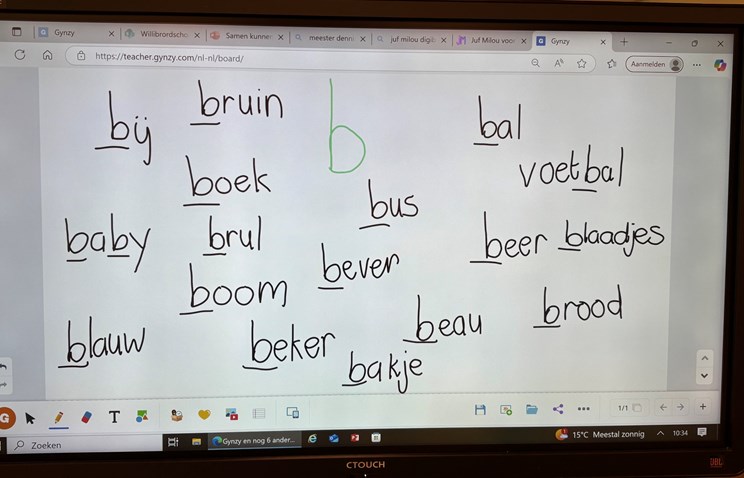 Gynzy
Willibrordsch
Samen kunne
meester denn
juf milou digi
Juf Milou voo
Gynzy
https://teacher.gynzy.com/nl-nl/board/
Aanmelden
bij bruin b bal
voetbal
boek
bus
baby brul beer blaadjes
bever
boom
brood
beau
blauw beker
bakje
T
1/1
Zoeken
Gynzy en nog 6 ander...
15°C Meestal zonnig
10:34
CTOUCH
JBL